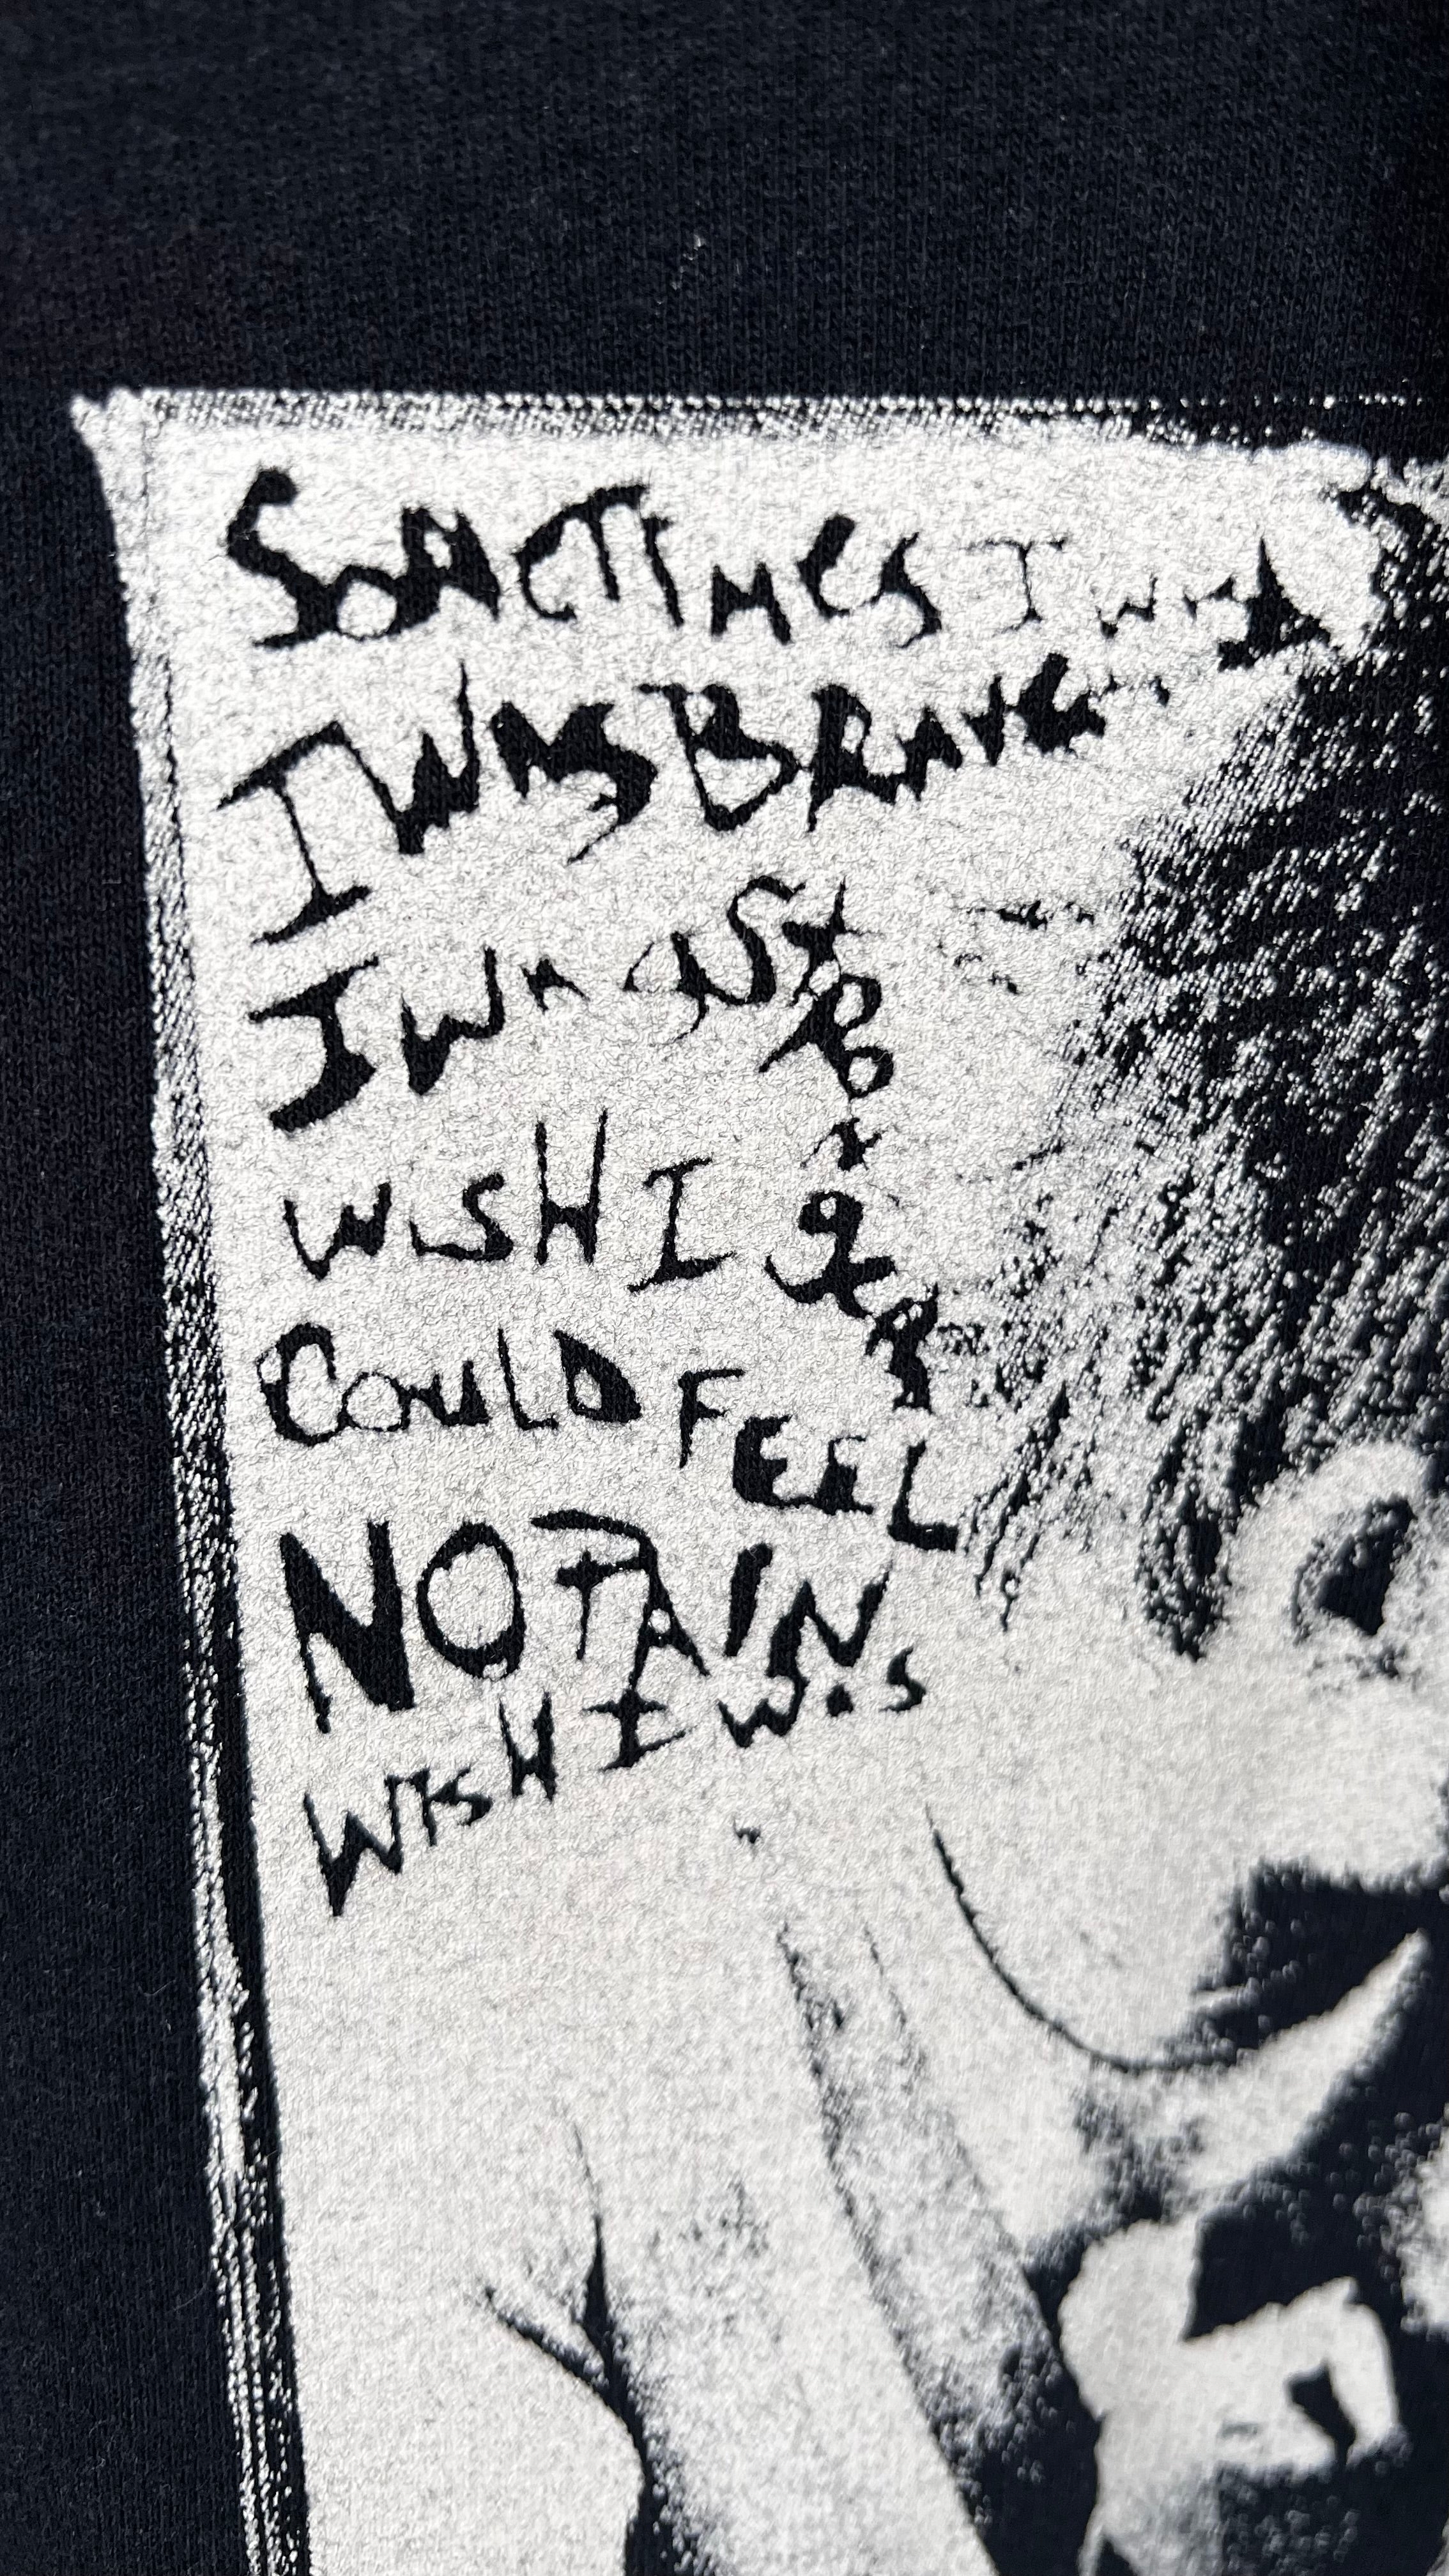 SOMETIMES I WISH
I WAS BRAVE
I WAS STRONGER
WISH I
COULD FEEL
NO PAIN
WISH I WAS